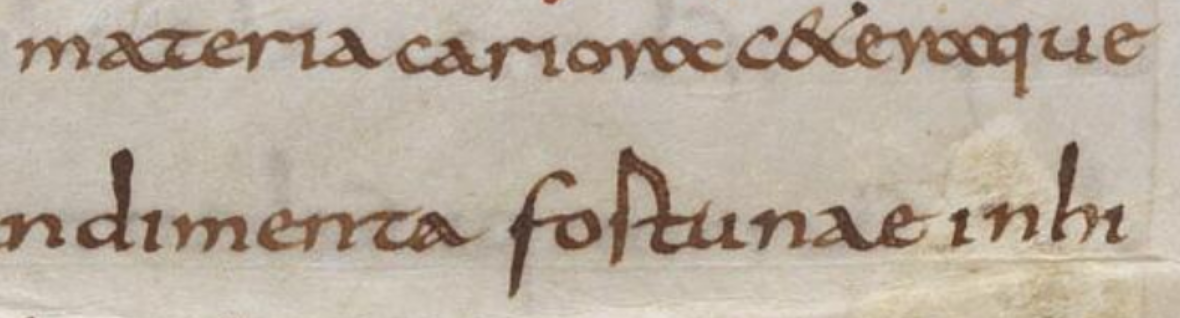 materia cariora c&eraque
ndimenta fortunae inhi